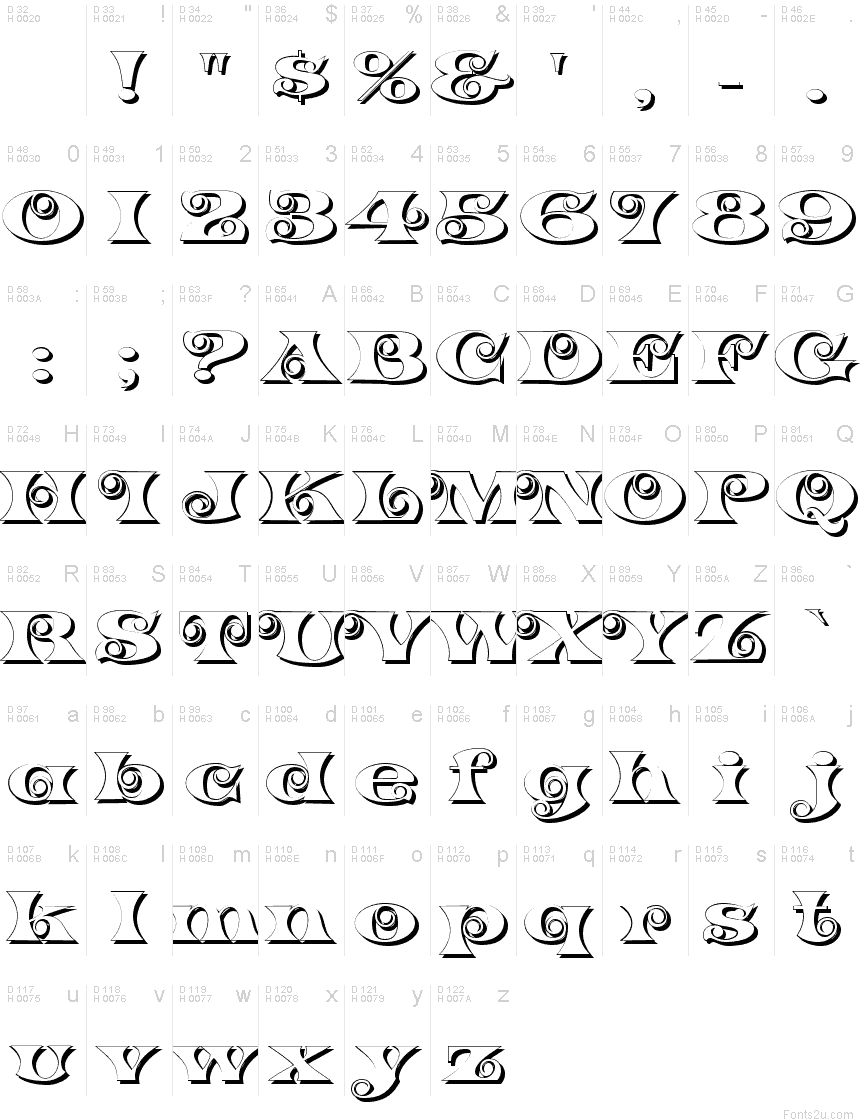 D 32 H 0020 D 33 H 0021 ! D 34 H 0022 " D 36 H 0024 $ D 37 H 0025 % D 38 H 0026 & D 39 H 0027 ' D 44 H 002C , D 45 H 002D - D 46 H 002E .
! " $ % & ' , - .
D 48 H 0030 0 D 49 H 0031 1 D 50 H 0032 2 D 51 H 0033 3 D 52 H 0034 4 D 53 H 0035 5 D 54 H 0036 6 D 55 H 0037 7 D 56 H 0038 8 D 57 H 0039 9
0 1 2 3 4 5 6 7 8 9
D 58 H 003A : D 59 H 003B ; D 63 H 003F ? D 65 H 0041 A D 66 H 0042 B D 67 H 0043 C D 68 H 0044 D D 69 H 0045 E D 70 H 0046 F D 71 H 0047 G
: ; ? A B C D E F G
D 72 H 0048 H D 73 H 0049 I D 74 H 004A J D 75 H 004B K D 76 H 004C L D 77 H 004D M D 78 H 004E N D 79 H 004F O D 80 H 0050 P D 81 H 0051 Q
H I J K L M N O P Q
D 82 H 0052 R D 83 H 0053 S D 84 H 0054 T D 85 H 0055 U D 86 H 0056 V D 87 H 0057 W D 88 H 0058 X D 89 H 0059 Y D 90 H 005A Z D 96 H 0060 `
R S T U V W X Y Z `
D 97 H 0061 a D 98 H 0062 b D 99 H 0063 c D 100 H 0064 d D 101 H 0065 e D 102 H 0066 f D 103 H 0067 g D 104 H 0068 h D 105 H 0069 i D 106 H 006A j
a b c d e f g h i j
D 107 H 006B k D 108 H 006C l D 109 H 006D m D 110 H 006E n D 111 H 006F o D 112 H 0070 p D 113 H 0071 q D 114 H 0072 r D 115 H 0073 s D 116 H 0074 t
k l m n o p q r s t
D 117 H 0075 u D 118 H 0076 v D 119 H 0077 w D 120 H 0078 x D 121 H 0079 y D 122 H 007A z
u v w x y z
Fonts2u.com